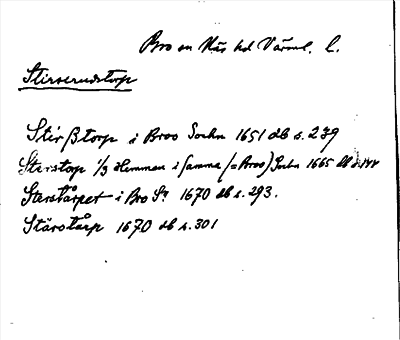 Bro sn Näs hd Värml. l.
Stirserudstorp
Stirßtorp i Broo Sochn 1651 db s. 239
Sterstop 1/3 Hemman i samma (=Broo) Sochn 1665 db s.
Sterstårpet i Bro Sn 1670 db s. 293.
Stärstårp 1670 db s. 301